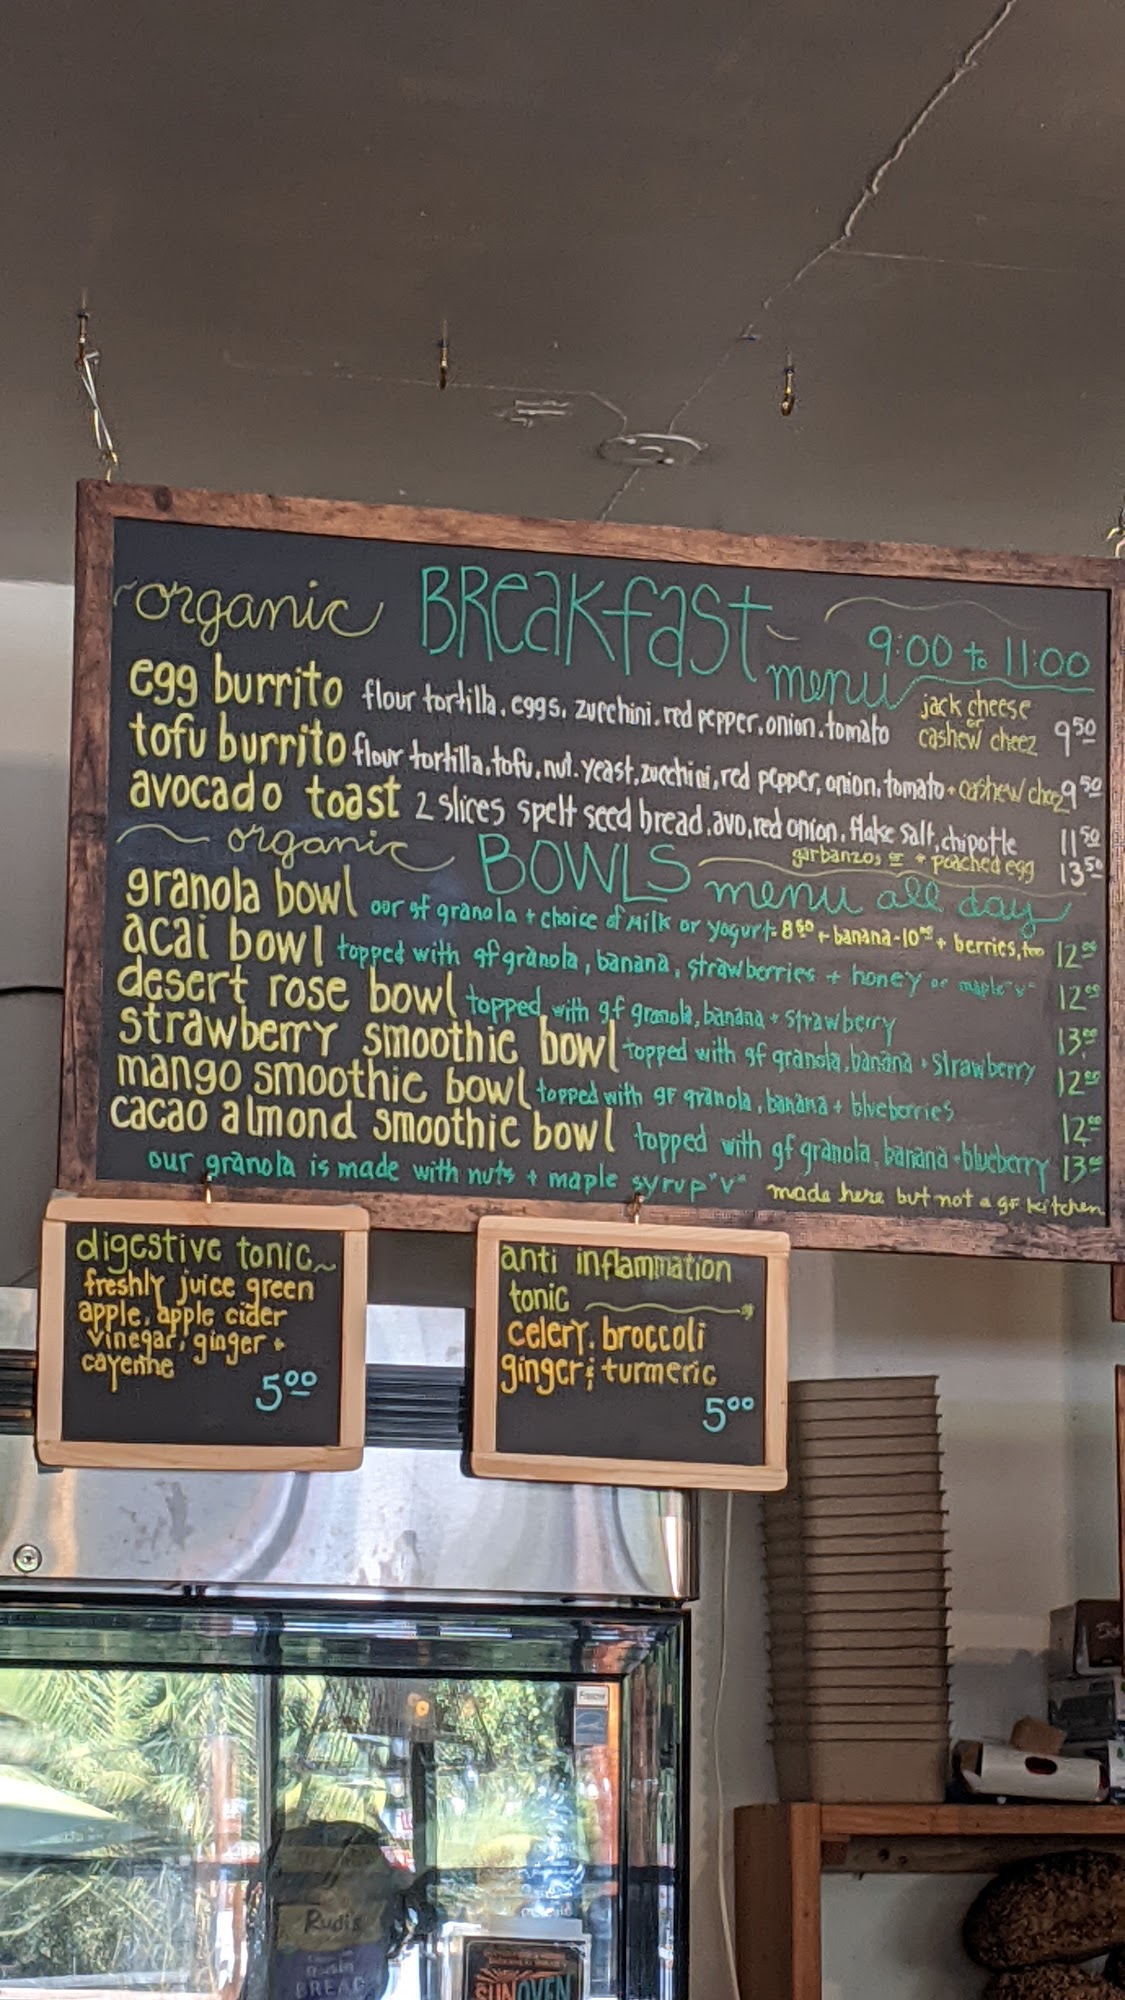 organic BREAKfAST menu 9:00 to 11:00
egg burrito flour tortilla, eggs, zucchini, red pepper, onion, tomato jack cheese or cashew cheez 9 50
tofu burrito flour tortilla, tofu, nut. yeast, zucchini, red pepper, onion, tomato + cashew cheez 9 50
avocado toast 2 slices spelt seed bread, avo, red onion, flake salt, chipotle 11 50
garbanzos or + poached egg 13 50
organic BOWLS menu all day
granola bowl our gf granola + choice of milk or yogurt - 8 50 + banana - 10 00 + berries, too 12 00
acai bowl topped with gf granola, banana, strawberries + honey or maple "v" 12 00
desert rose bowl topped with gf granola, banana + strawberry 13 00
strawberry smoothie bowl topped with gf granola, banana + strawberry 12 00
mango smoothie bowl topped with gf granola, banana + blueberries 12 00
cacao almond smoothie bowl topped with gf granola, banana + blueberry 13 00
our granola is made with nuts + maple syrup "v" made here but not a gf kitchen
digestive tonic
freshly juice green
apple, apple cider
vinegar, ginger +
cayenne
5 00
anti inflammation
tonic
celery, broccoli
ginger & turmeric
5 00
Rudi's
raisin
BREAD
SUN OVEN